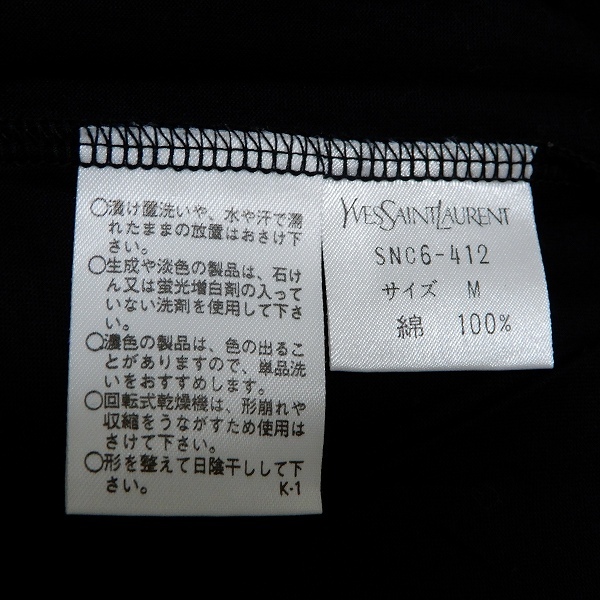 ○漬け置洗いや、水や汗で濡
れたままの放置はおさけ下
さい。
○生成や淡色の製品は、石け
ん又は蛍光増白剤の入って
いない洗剤を使用して下さ
い。
○濃色の製品は、色の出るこ
とがありますので、単品洗
いをおすすめします。
○回転式乾燥機は、形崩れや
収縮をうながすため使用は
さけて下さい。
○形を整えて日陰干しして下
さい。 K-1
YVESSAINTLAURENT
SNC6-412
サイズ M
綿 100%